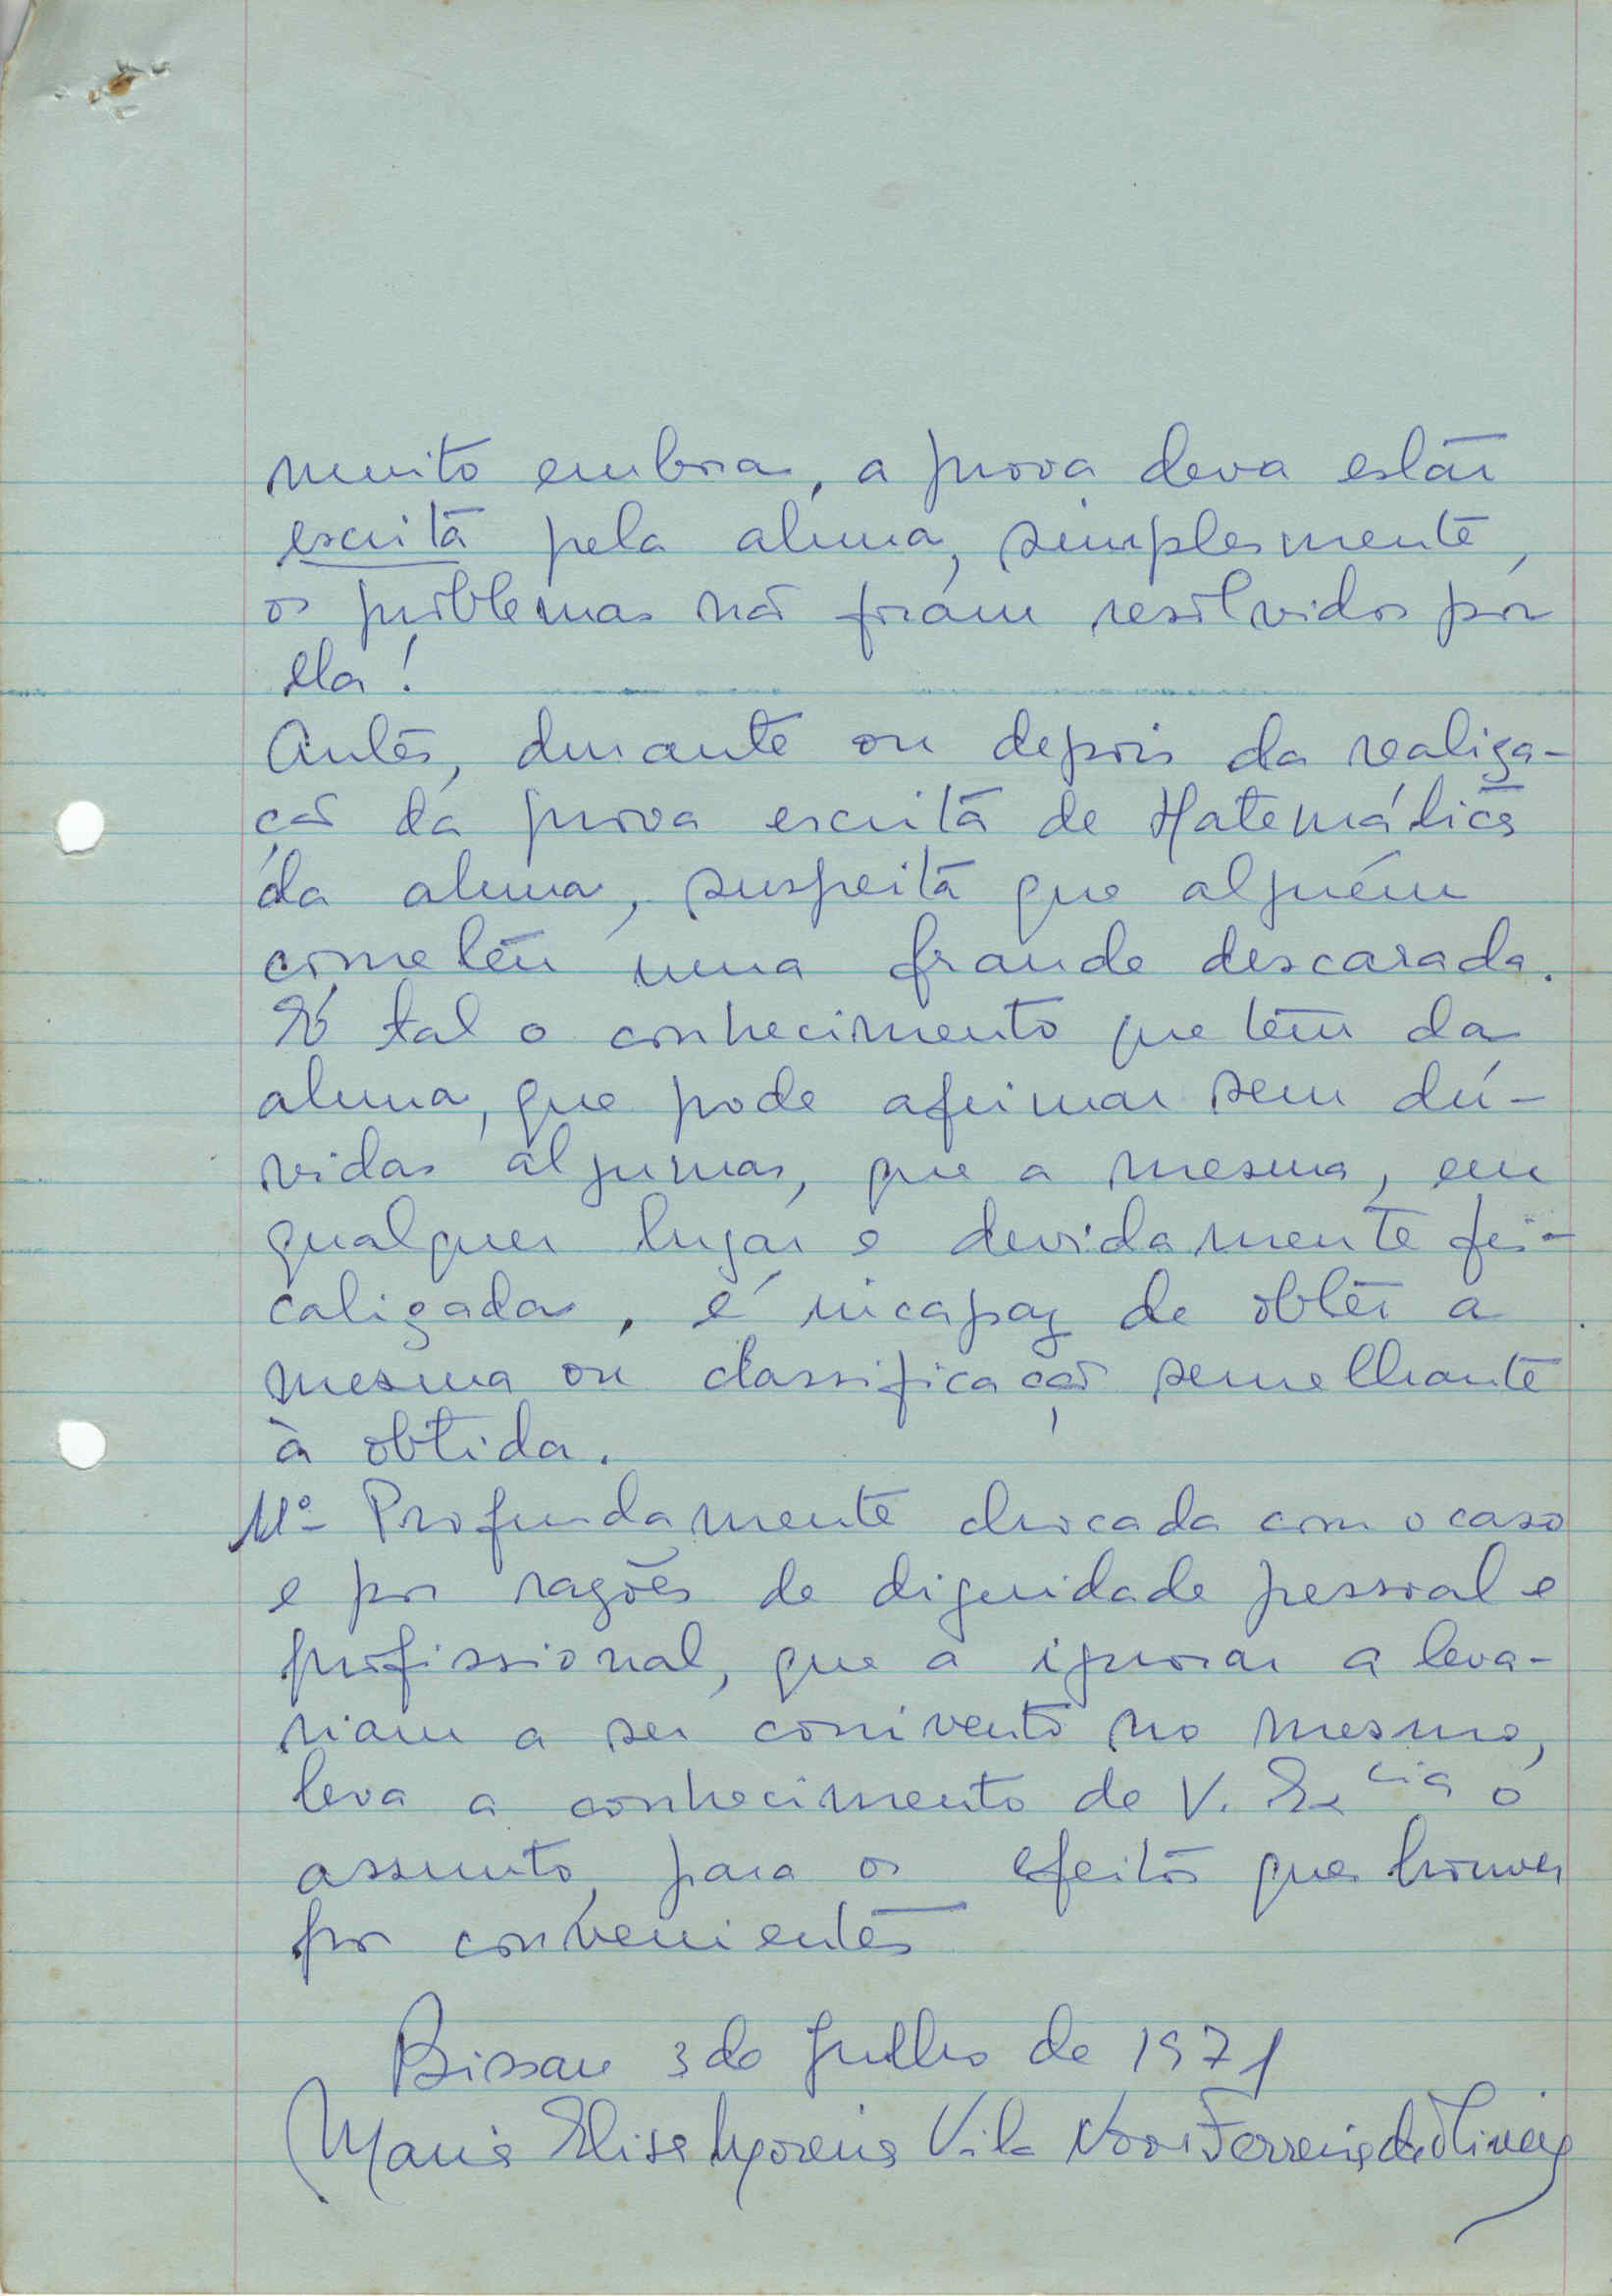 muito embora, a prova deva estar
escrita pela aluna, simplesmente,
os problemas não foram resolvidos por
ela!
Antes, durante ou depois da realiza-
ção da prova escrita de Matemática
da aluna, suspeita que alguém
cometeu uma fraude descarada.
É tal o conhecimento que tem da
aluna, que pode afirmar sem dú-
vidas algumas, que a mesma, em
qualquer lugar e devidamente fis-
calizada, é incapaz de obter a
mesma ou classificação semelhante
à obtida.
11º- Profundamente chocada com o caso
e por razões de dignidade pessoal e
profissional, que a ignorar a leva-
riam a ser conivente no mesmo,
leva a conhecimento de V. Excia o
assunto, para os efeitos que houver
por convenientes
Bissau 3 de Julho de 1971
Maria Elisa Moreira Vila Nova Ferreira de Oliveira